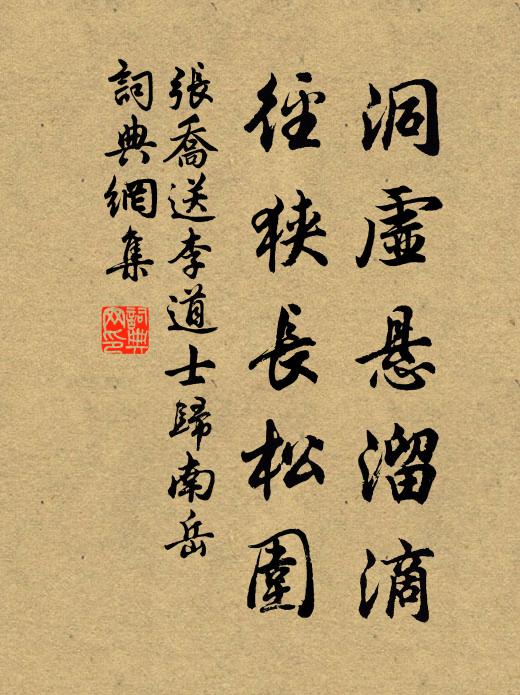 洞虛悬溜滴
徑狹長松圍
張喬送李道士歸南岳
詞典網集
詞典网印